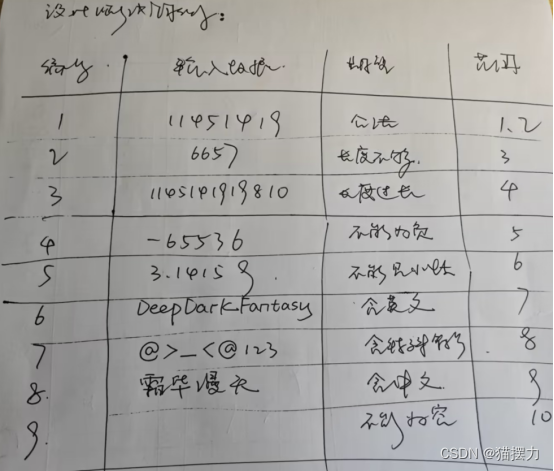 设计测试用例:
编号 输入数据 期望 范围
1 11451419 合法 1.2
2 6657 长度不够. 3
3 1145141919810 长度过长 4
4 -65536 不能为负 5
5 3.14159 不能是小数 6
6 DeepDarkFantasy 含英文 7
7 @>_<@123 含特殊符号 8
8. 霜华漫天 含中文 9
9. 不能为空 10
CSDN @猫摆力